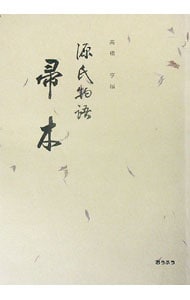 高橋 亨編
源氏物語
帚木
おうふう